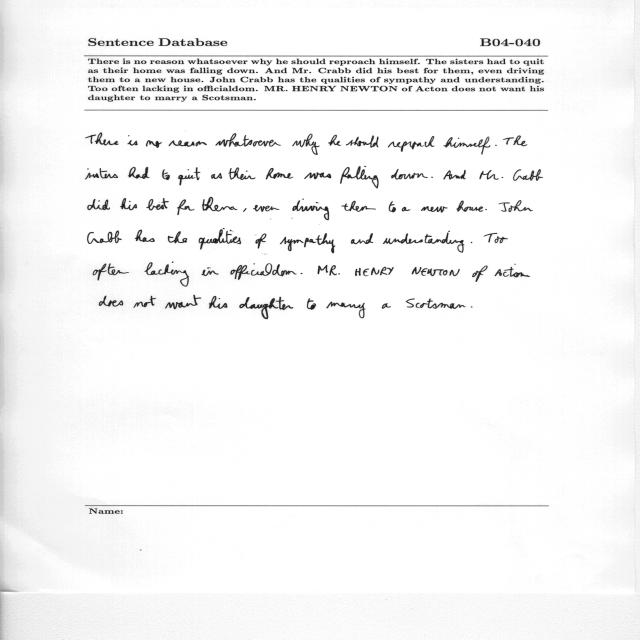 Sentence Database B04-040
There is no reason whatsoever why he should reproach himself. The sisters had to quit
as their home was falling down. And Mr. Crabb did his best for them, even driving
them to a new house. John Crabb has the qualities of sympathy and understanding.
Too often lacking in officialdom. MR. HENRY NEWTON of Acton does not want his
daughter to marry a Scotsman.
There is no reason whatsoever why he should reproach himself. The
sisters had to quit as their home was falling down. And Mr. Crabb
did his best for them, even driving them to a new house. John
Crabb has the qualities of sympathy and understanding. Too
often lacking in officialdom. MR. HENRY NEWTON of Acton
does not want his daughter to marry a Scotsman.
Name: